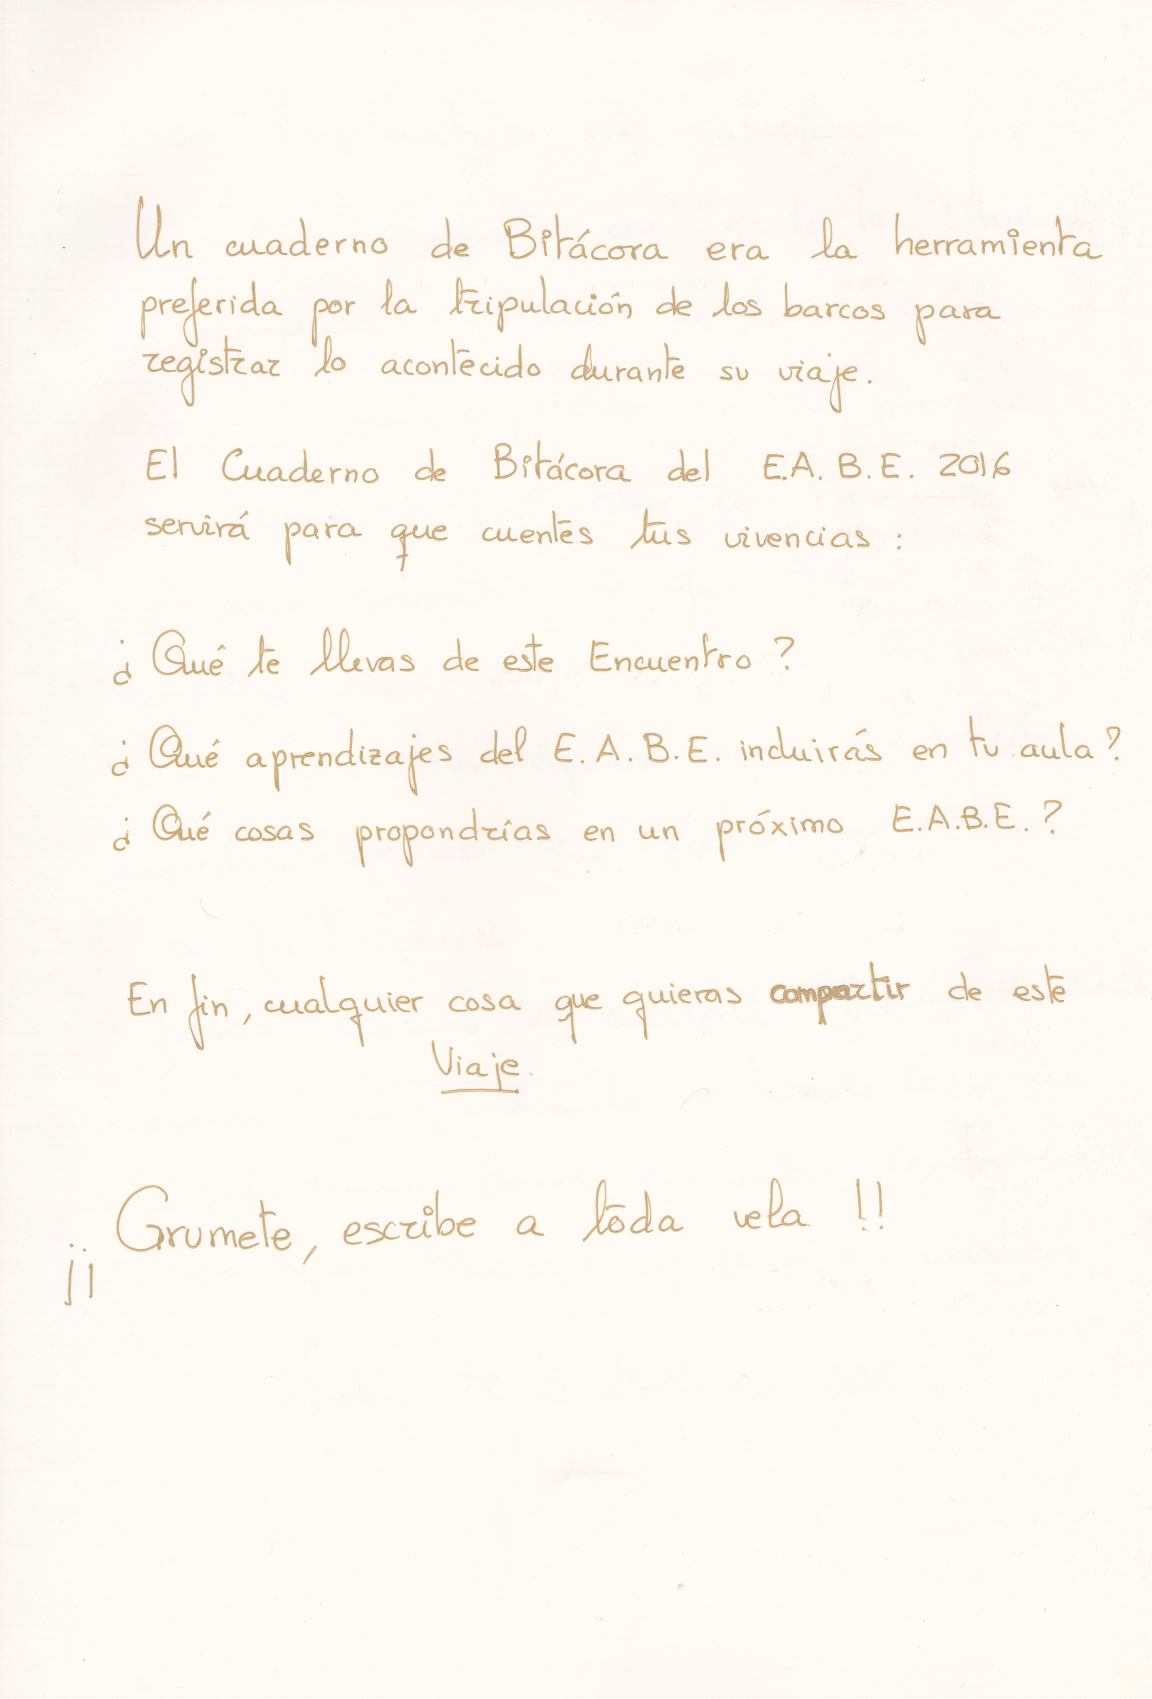 Un cuaderno de Bitácora era la herramienta
preferida por la tripulación de los barcos para
registrar lo acontecido durante su viaje.
El Cuaderno de Bitácora del E.A.B.E. 2016
servirá para que cuentes tus vivencias :
¿Qué te llevas de este Encuentro?
¿Qué aprendizajes del E.A.B.E. incluirás en tu aula?
¿Qué cosas propondrías en un próximo E.A.B.E.?
En fin, cualquier cosa que quieras compartir de este
Viaje.
¡¡Grumete, escribe a toda vela!!